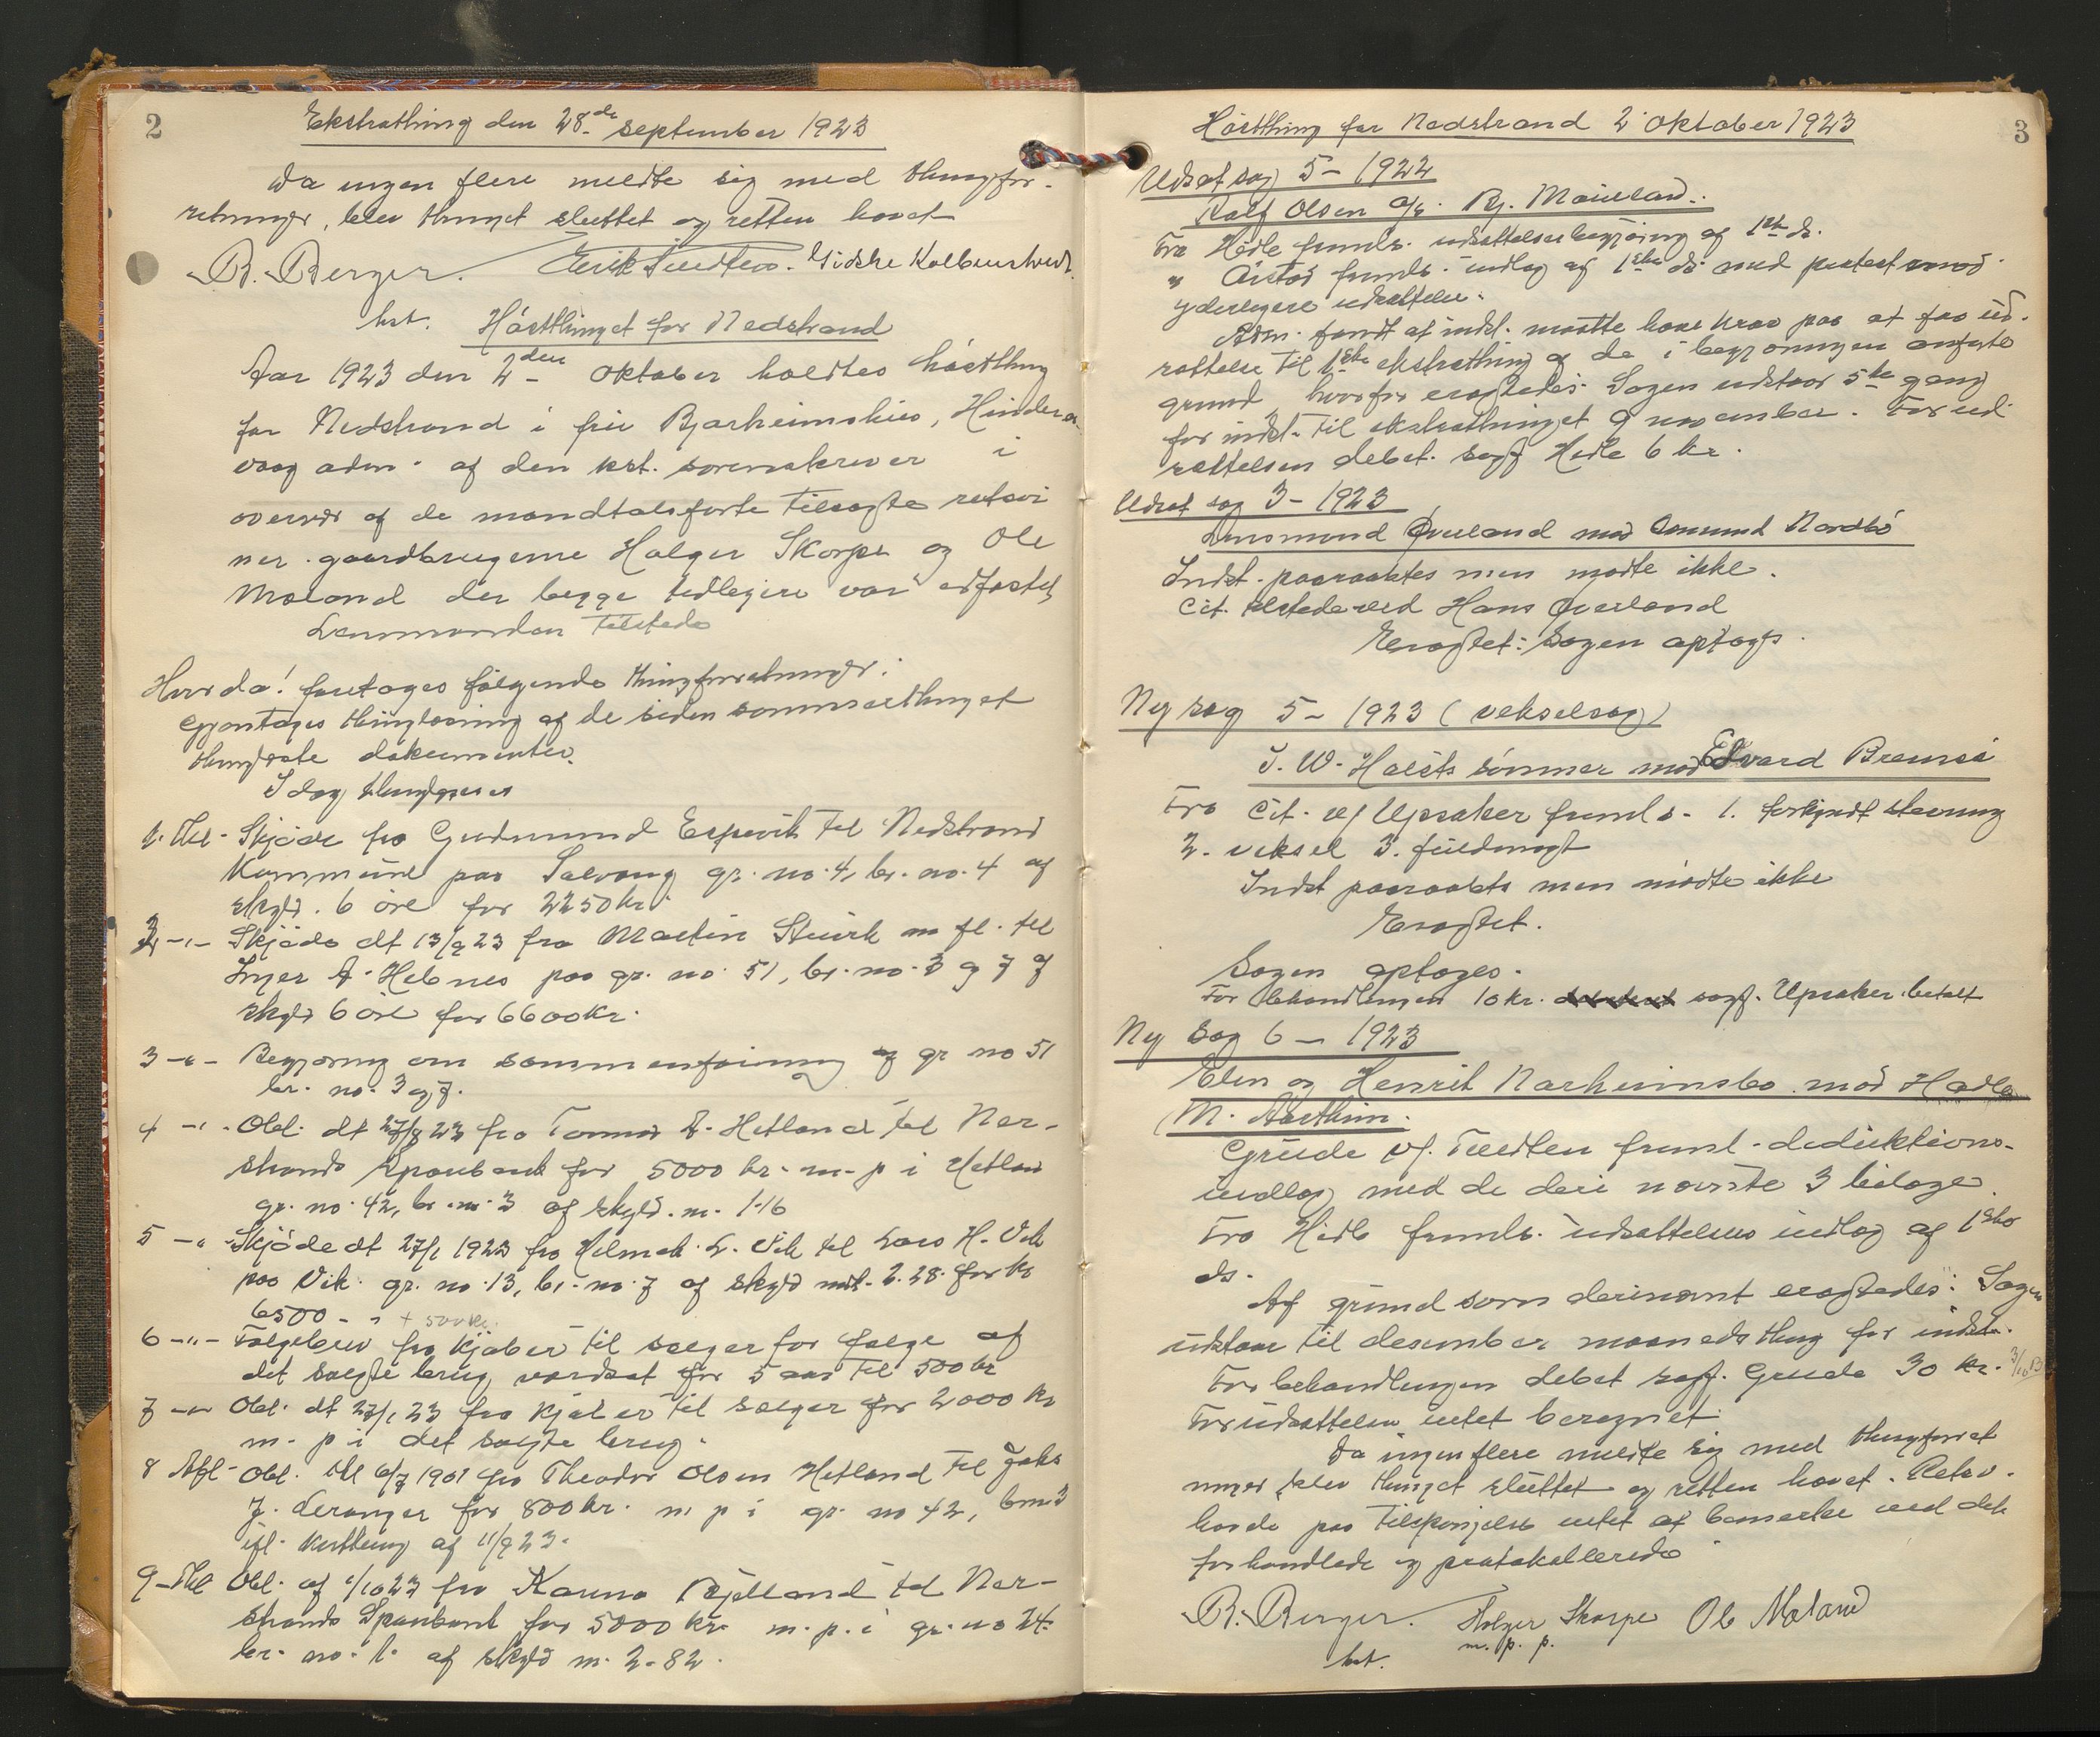 2
Ekstrathing den 28de september 1923
Da ingen flere meldte sig med thingfor-
retninger, blev thinget sluttet og retten hævet
B. Berger. Erik Tuedten. Gidske Kolbeinstvedt
kst.
Høstthinget for Nedstrand
Aar 1923 den 2den oktober holdtes høstthing
for Nedstrand i fru Bjarheims hus, Hindera-
vaag adm. af den kst. sorenskriver i
overvær af de mandtalsførte tilsagte retsvi
ner gaardbrugerne Holger Skorpe og Ole
Moland der begge tidligere var edfæstet
Lensmanden tilstede
Hvorda! foretoges følgende thingforretninger:
Gjentoges thinglæsning af de siden sommerthinget
thinglæste dokumenter.
Idag thinglæses
1. Thl - Skjøde fra Gudmund Espevik til Nedstrand
Kommune paa Solvang gr. no. 4, br. no. 4 af
skyld. 6 øre for 2250 kr.
2 -"- Skjøde dt 13/9 23 fra Martin Stuvik m fl. til
Inger A. Hebnes paa gr. no. 51, br. no. 3 og 7 af
skyld 6 øre for 6600 kr.
3 -"- Begjæring om sammenføining af gr no 51
br. no. 3 og 7.
4 -"- Obl. dt 27/8 23 fra Tonnes A. Hetland til Ner-
strands Sparebank for 5000 kr. m. p i Hetland
gr. no. 42, br. no. 3 af skyld. m. 1.16
5 -"- Skjøde dt 27/1 1923 fra Helmik L. Vik til Lars H. Vik
paa Vik. gr. no. 13, br. no. 7 af skyld mk. 2.28 for kr
6500 - " + 500 kr.
6 -"- Følgebrev fra kjøber til sælger for følge af
det solgte brug værdsat for 5 aar til 500 kr
7 -"- Obl. dt 27/1 23 fra kjøber til sælger for 2000 kr
m. p i det solgte brug.
8 Afl - Obl. thl 6/7 1901 fra Theodor Olsen Hetland til Jaks
J. Leranger for 800 kr. m p i gr. no 42, bno 3
ifl. kvittering af 11/9 23.
9 - Thl Obl. af 1/10 23 fra Karina Bjelland til Ner-
strands Sparebank for 5000 kr. m. p. i gr. no 24
br. no. 1. af skyld m. 2-82.
Høstthing for Nedstrand 2 oktober 1923
3
Udsat sag 5 - 1922
Ralf Olsen a/s. Bj. Mæland.
Fra Hidle fremls. udsættelsesbegjæring af 1ste ds.
" Aarstad fremls. indlæg af 1ste ds. med protest mod
yderligere udsættelse.
Adm. fandt at indst. maatte have krav paa at faa ud-
sættelse til 1ste ekstrathing af de i begjæringen anførte
grund hvorfor eragtedes: Sagen udstaar 5te gang
for indst. til ekstrathinget 9 november. For ud-
sættelsen debet. sagf Hidle 6 kr.
Udsat sag 3 - 1923
Lensmand Øverland mod Osmund Nordbø
Indst. paaraabtes men mødte ikke.
Cit. tilstede ved Hans Øverland
Eragtet: Sagen optages.
Ny sag 5 - 1923 (vekselsag)
J. W. Holsts sønner mod Edvard Bremsø
Fra cit. v/ Upsaker fremls. 1. forkyndt stevning
2. veksel 3. fuldmagt
Indst paaraabtes men mødte ikke
Eragtet.
Sagen optages.
For behandlingen 10 kr. sagf. Upsaker betalt
Ny sag 6 - 1923
Elen og Henrik Narheimsbo mod Hadle
M. Aarthun.
Grude v/. Tuedten freml. deduktions-
indlæg med de deri nævnte 3 bilage.
Fra Hidle fremls. udsættelses indlæg af 1ste
ds.
Af grund som derinævnt eragtedes: Sagen
udstaar til desember maanedsthing for indst.
For behandlingen debet sagf. Grude 30 kr. 3/10 B
For udsættelsen intet beregnet.
Da ingen flere meldte sig med thingforret
ninger blev thinget sluttet og retten hævet. Retsv.
havde paa tilspørgelse intet at bemerke ved det
forhandlede og protokollerede
B. Berger. Holger Skorpe Ole Moland
kst. m. p. p.